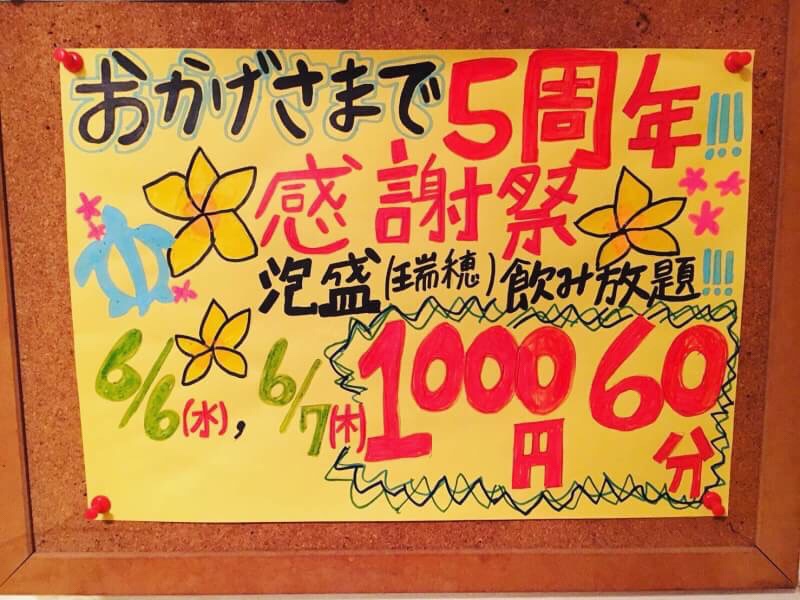 おかげさまで5周年!!!
感謝祭
泡盛(瑞穂)飲み放題!!!
6/6(水), 6/7(木)
1000円 60分